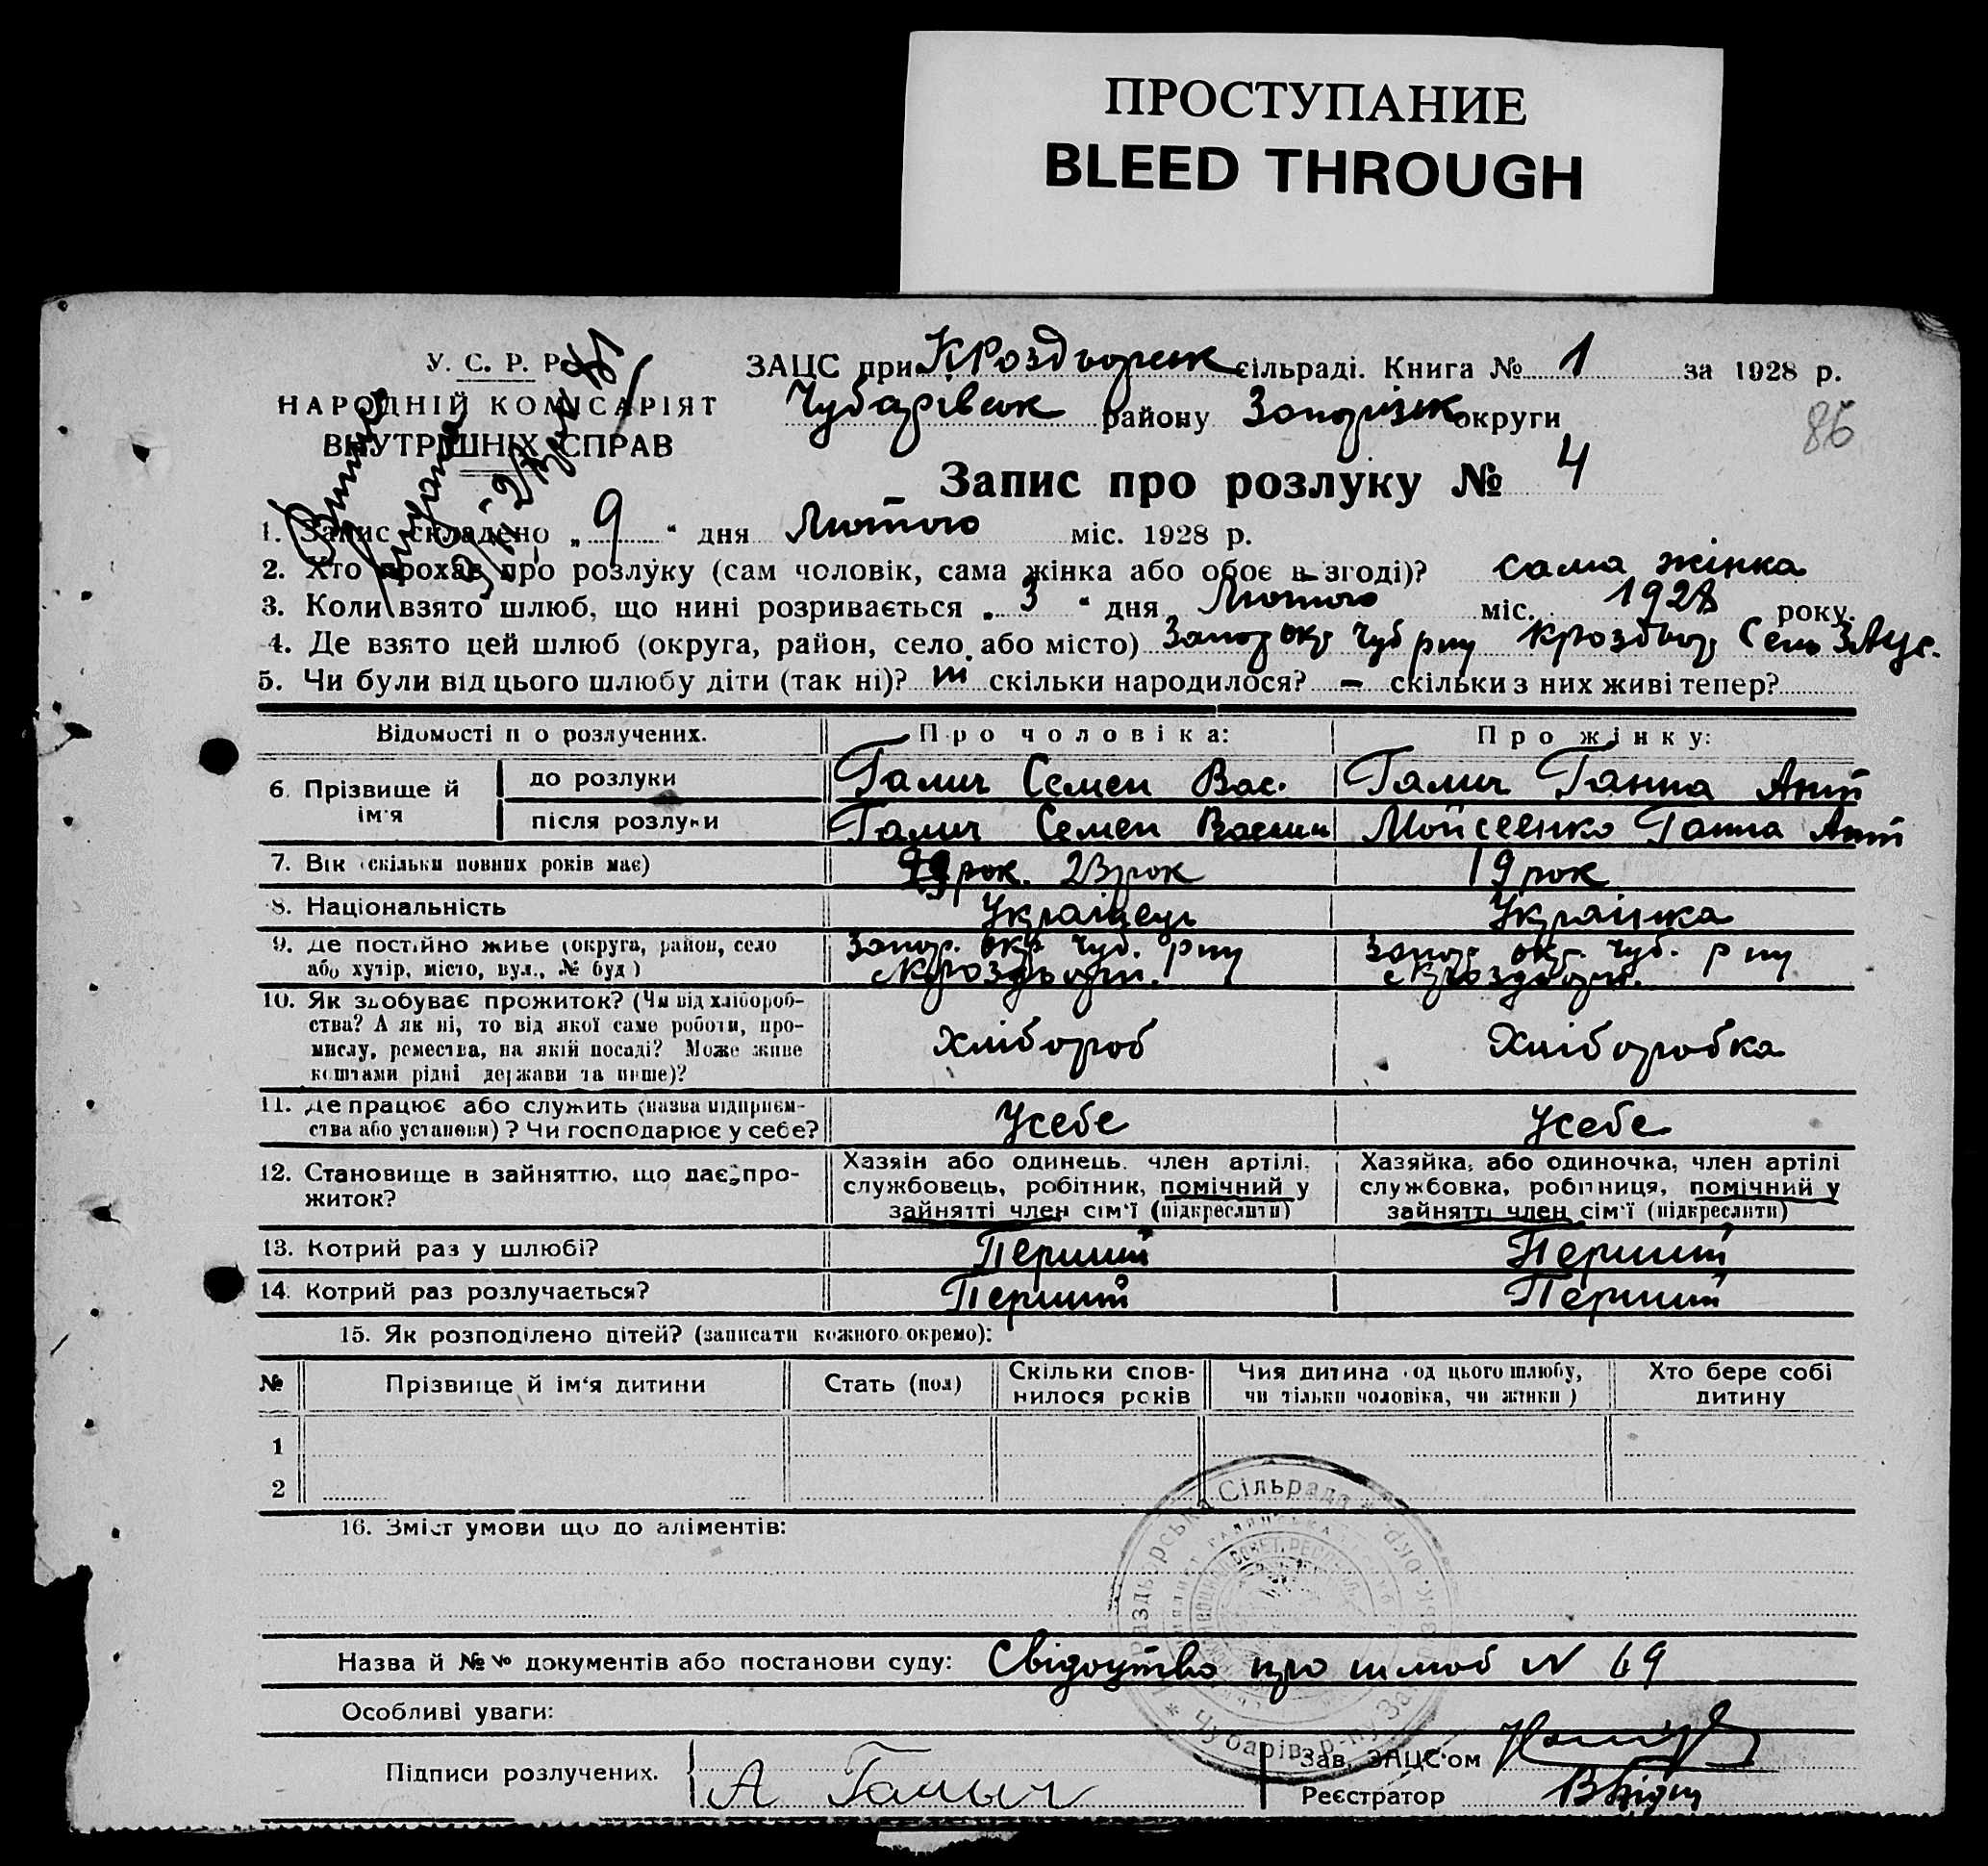 ПРОСТУПАНИЕ
BLEED THROUGH
У. С. Р. Р.
НАРОДНІЙ КОМІСАРІЯТ
ВНУТРІШНІХ СПРАВ
ЗАЦС при К Роздорськ сільраді. Книга № 1 за 1928 р.
Чубарівськ району Запорізьк округи
86
Запис про розлуку № 4
1. Запис складено „ 9 “ дня Лютого міс. 1928 р.
2. Хто прохав про розлуку (сам чоловік, сама жінка або обоє в згоді)? сама жінка
3. Коли взято шлюб, що нині розривається „ 3 “ дня Лютого міс. 1928 року.
4. Де взято цей шлюб (округа, район, село або місто) Запор окр Чуб рну
5. Чи були від цього шлюбу діти (так ні)? ні скільки народилося? – скільки з них живі тепер?
Відомості п о розлучених. Про чоловіка: Про жінку:
6. Прізвище й ім'я до розлуки Галич Семен Вас. Галич Ганна Ант
після розлуки Галич Семен Васили Мойсеенко Ганна Ант
7. Вік (скільки повних років має) рок. 23 рок 19 рок
8. Національність Українець Українка
9. Де постійно живе (округа, район, село Запор. окр Чуб. рну Запор окр. Чуб. рну
або хутір, місто, вул., № буд)
10. Як здобуває прожиток? (Чи від хлібороб-
ства? А як ні, то від якої саме роботи, про-
мислу, ремества, на якій посаді? Може живе Хлібороб Хліборобка
коштами рідні держави та инше)?
11. Де працює або служить (назва підприєм-
ства або установи)? Чи господарює у себе? Усебе Усебе
12. Становище в зайняттю, що дає про-
житок?
Хазяїн або одинець. член артілі,
службовець, робітник, помічний у
зайнятті член сім'ї (підкреслити)
Хазяйка, або одиночка, член артілі
службовка, робітниця, помічний у
зайнятті член сім'ї (підкреслити)
13. Котрий раз у шлюбі? Перший Перший
14. Котрий раз розлучається? Перший Перший
15. Як розподілено дітей? (записати кожного окремо):
№ Прізвище й ім'я дитини Стать (пол) Скільки спов-нилося років Чия дитина (од цього шлюбу, чи тільки чоловіка, чи жінки) Хто бере собі дитину
1
2
16. Зміст умови що до аліментів:
Сільрада
Чубарів. р-ну За
Назва й №№ документів або постанови суду: Свідоцтво про шлюб N 69
Особливі уваги:
Підписи розлучених. А Галыч
Зав. ЗАЦС'ом
Реєстратор